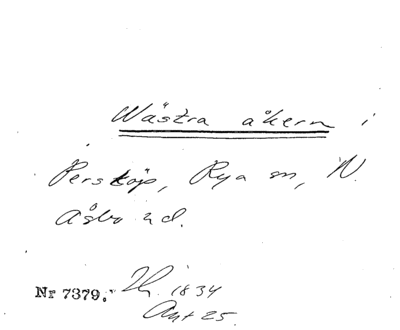 Wästra åkern i
Persköp, Rya sn, N.
Åsbo hd.
Nr 7379. Th. 1834
Ant 25.